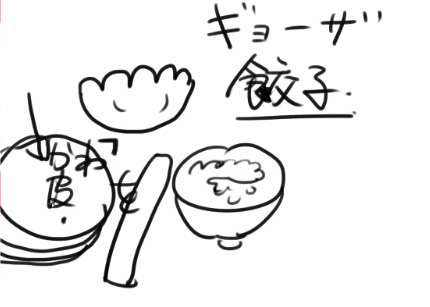 ギョーザ
餃子.
かわ
皮